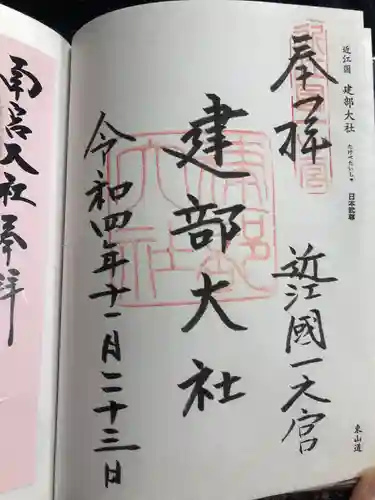 近江国 建部大社
たけべたいしゃ
日本武尊
東山道
奉拝
近江國一之宮
建部大社
令和四年十一月二十三日
南宮大社奉拝